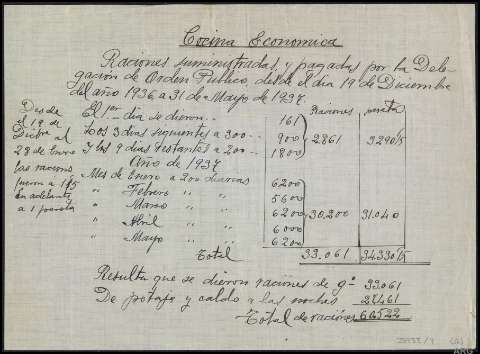 Cocina Economica
Raciones suministradas, y pagadas por la Dele-
gación de Orden Publico, desde el dia 19 de Diciembre
del año 1936 a 31 de Mayo de 1937.
Raciones pesetas
Desde el 19 de Dicbre al 28 de Enero las raciones fueron a 1'15 En adelante a 1 peseta
El 1er dia se dieron.. 161
Los 3 dias siguientes a 300... 900 2861 3290'15
Y los 9 dias restantes a 200... 1800
Año de 1937
Mes de Enero a 200 diarias 6200
" Febrero " " 5600
" Marzo " " 6200 30,200 31.040
" Abril " " 6000
" Mayo " " 6200
Total 33.061 34330'15
Resulta que se dieron raciones de 33061
De potaje y caldo a las noches 27461
Total de raciones 60522